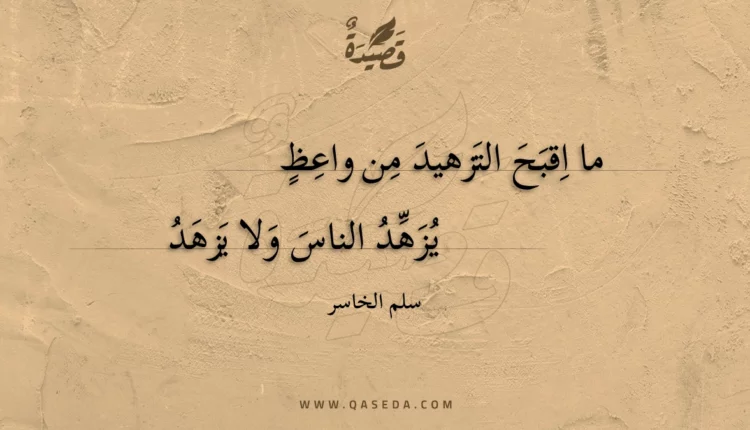 قَصِيدَةٌ
ما اِقبَحَ التَزهيدَ مِن واعِظٍ
يُزَهِّدُ الناسَ وَلا يَزهَدُ
سلم الخاسر
WWW.QASEDA.COM